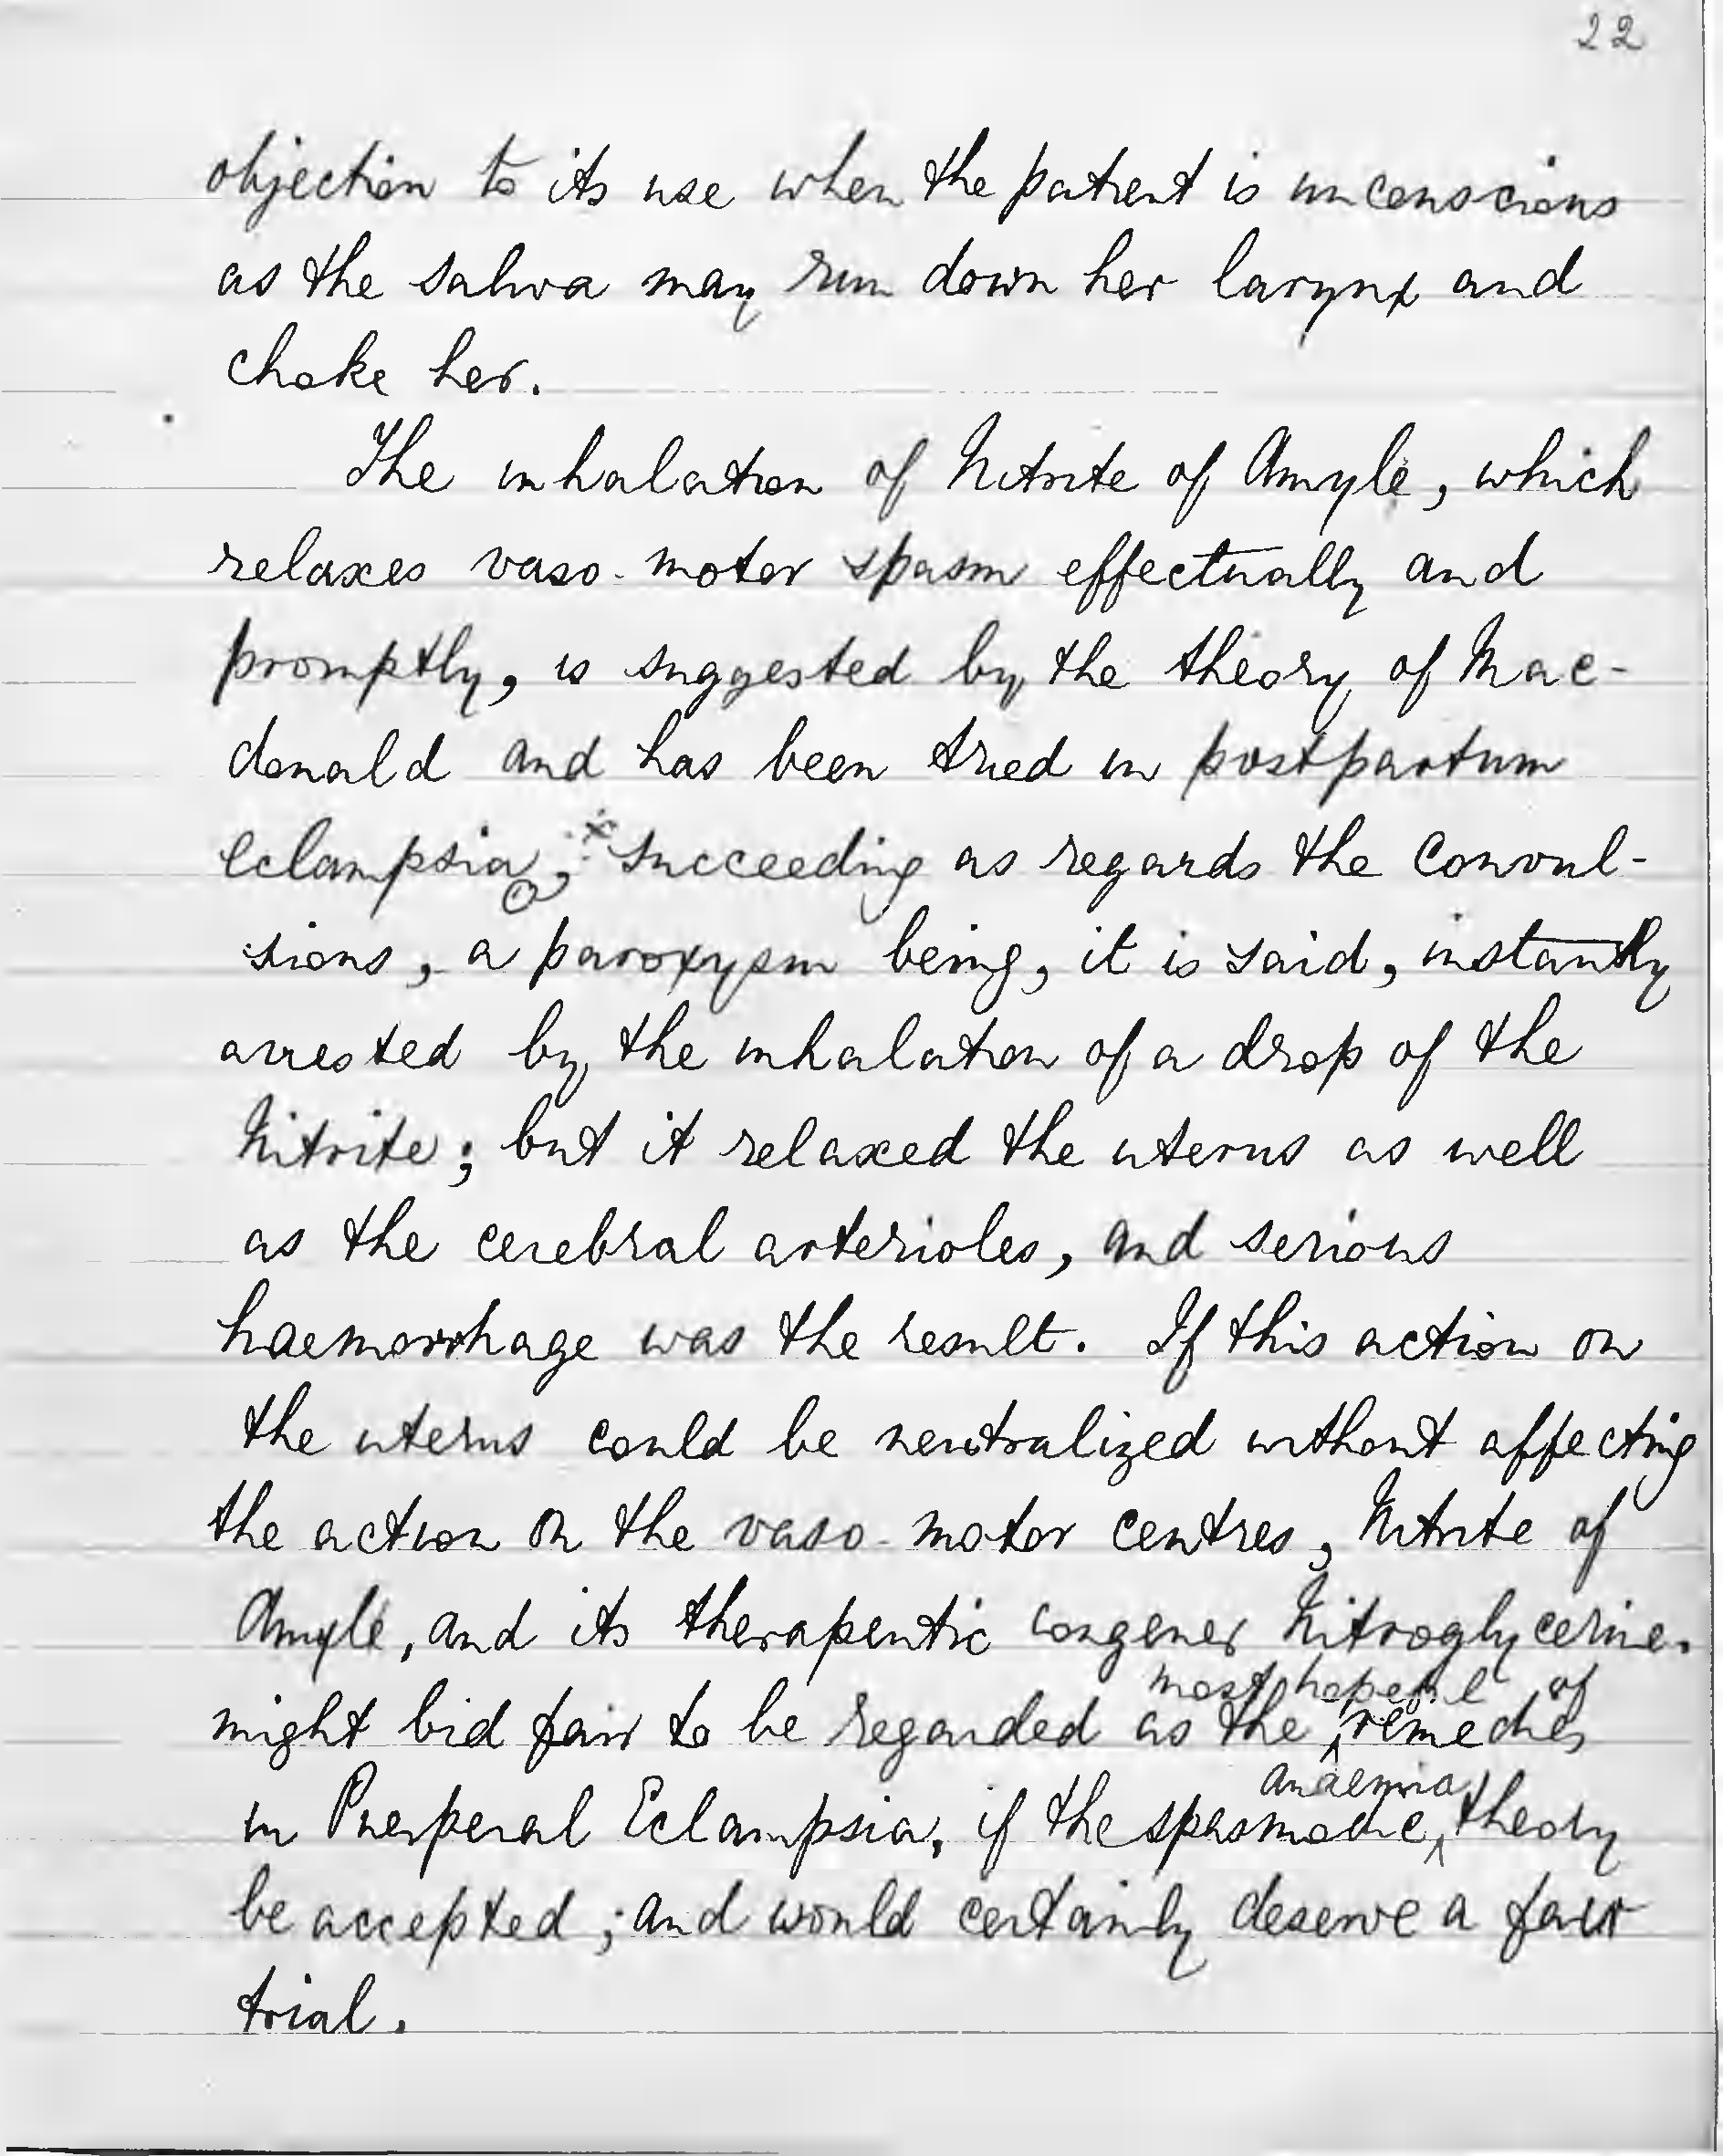 22
objection to its use when the patient is unconscious
as the saliva may run down her larynx and
choke her.
The inhalation of Nitrite of Amyle, which
relaxes vaso-motor spasm effectually and
promptly, is suggested by the theory of Mac-
donald and has been tried in postpartum
eclampsia, succeeding as regards the convul-
sions, a paroxysm being, it is said, instantly
arrested by the inhalation of a drop of the
Nitrite; but it relaxed the uterus as well
as the cerebral arterioles, and serious
haemorrhage was the result. If this action on
the uterus could be neutralized without affecting
the action on the vaso-motor centres, Nitrite of
Amyle, and its therapeutic congener Nitroglycerine.
most hopeful of
might bid fair to be regarded as the remedies
anaemia
in Puerperal Eclampsia, if the spasmodic theory
be accepted; and would certainly deserve a fair
trial.